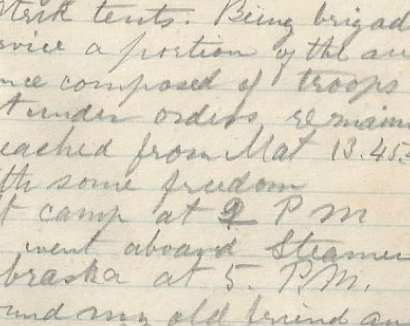 strik tents. Being brigad
rvice a portion of the au
nce composed of troops
t under orders remain
eached from Mat 13.45.
th some freedom
t camp at 2 P M
went aboard Steamer
braska at 5. P.M.
ound my old friend an